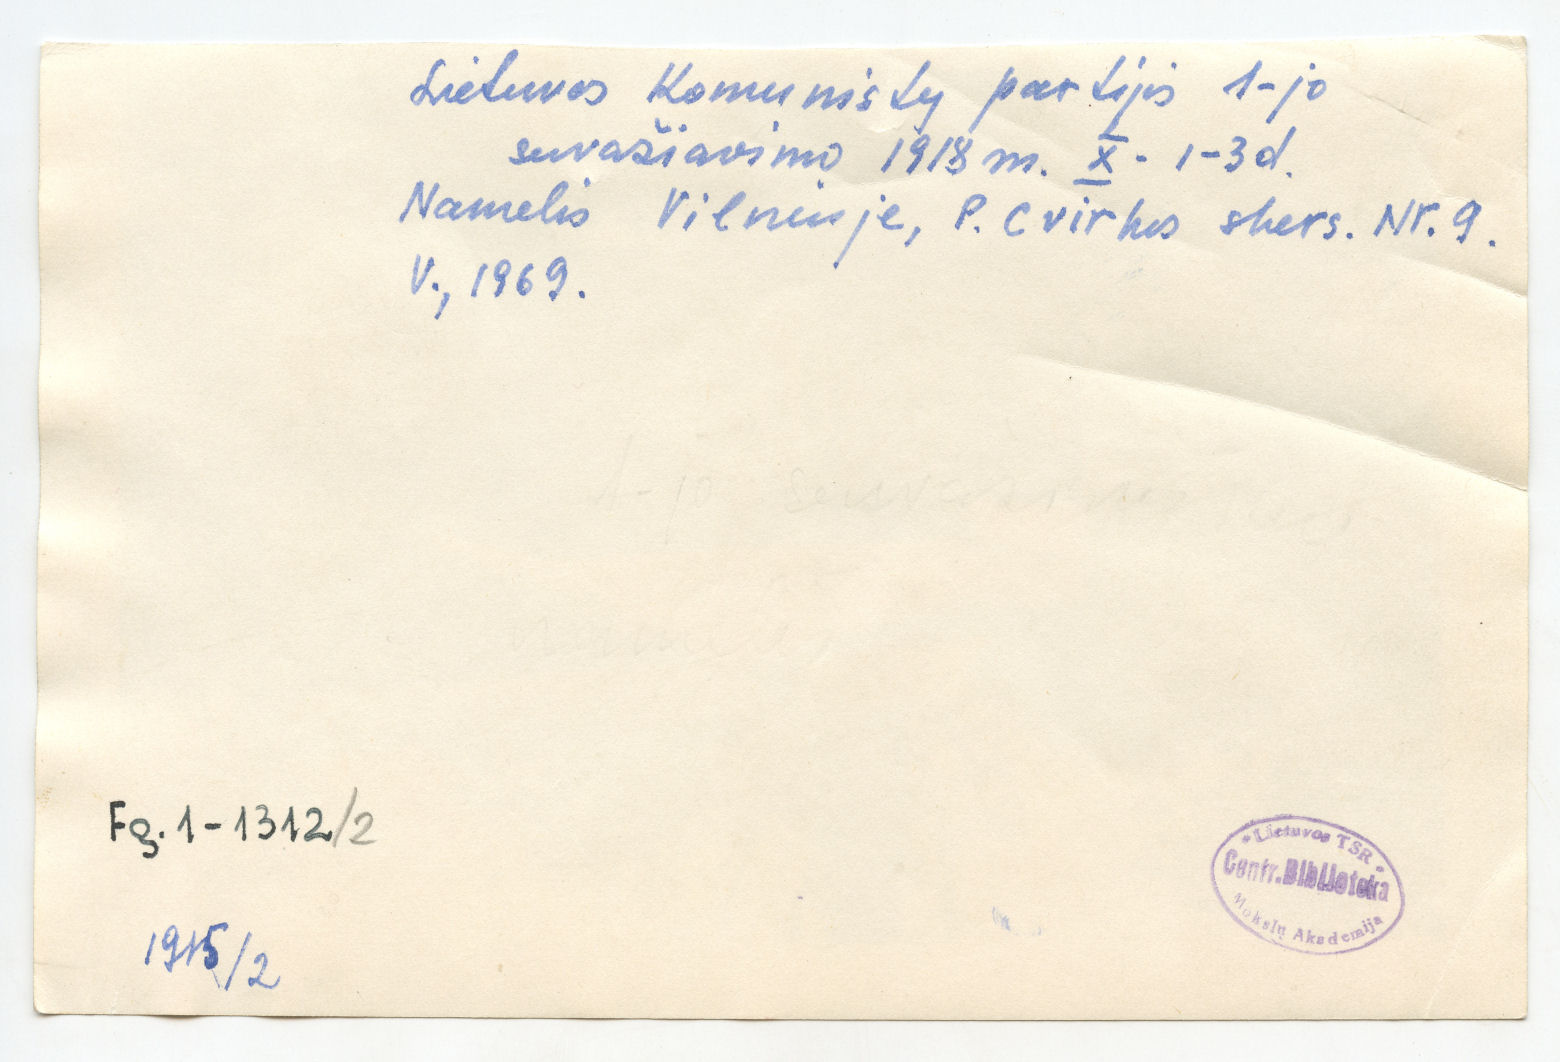 Lietuvos Komunistų partijos 1-jo
suvažiavimo 1918 m. X - 1-3 d.
Namelis Vilniuje, P. Cvirkos skers. Nr. 9.
V., 1969.
1-jo
Fg. 1-1312/2
* Lietuvos TSR *
Centr. Biblioteka
Mokslų Akademija
1915/2